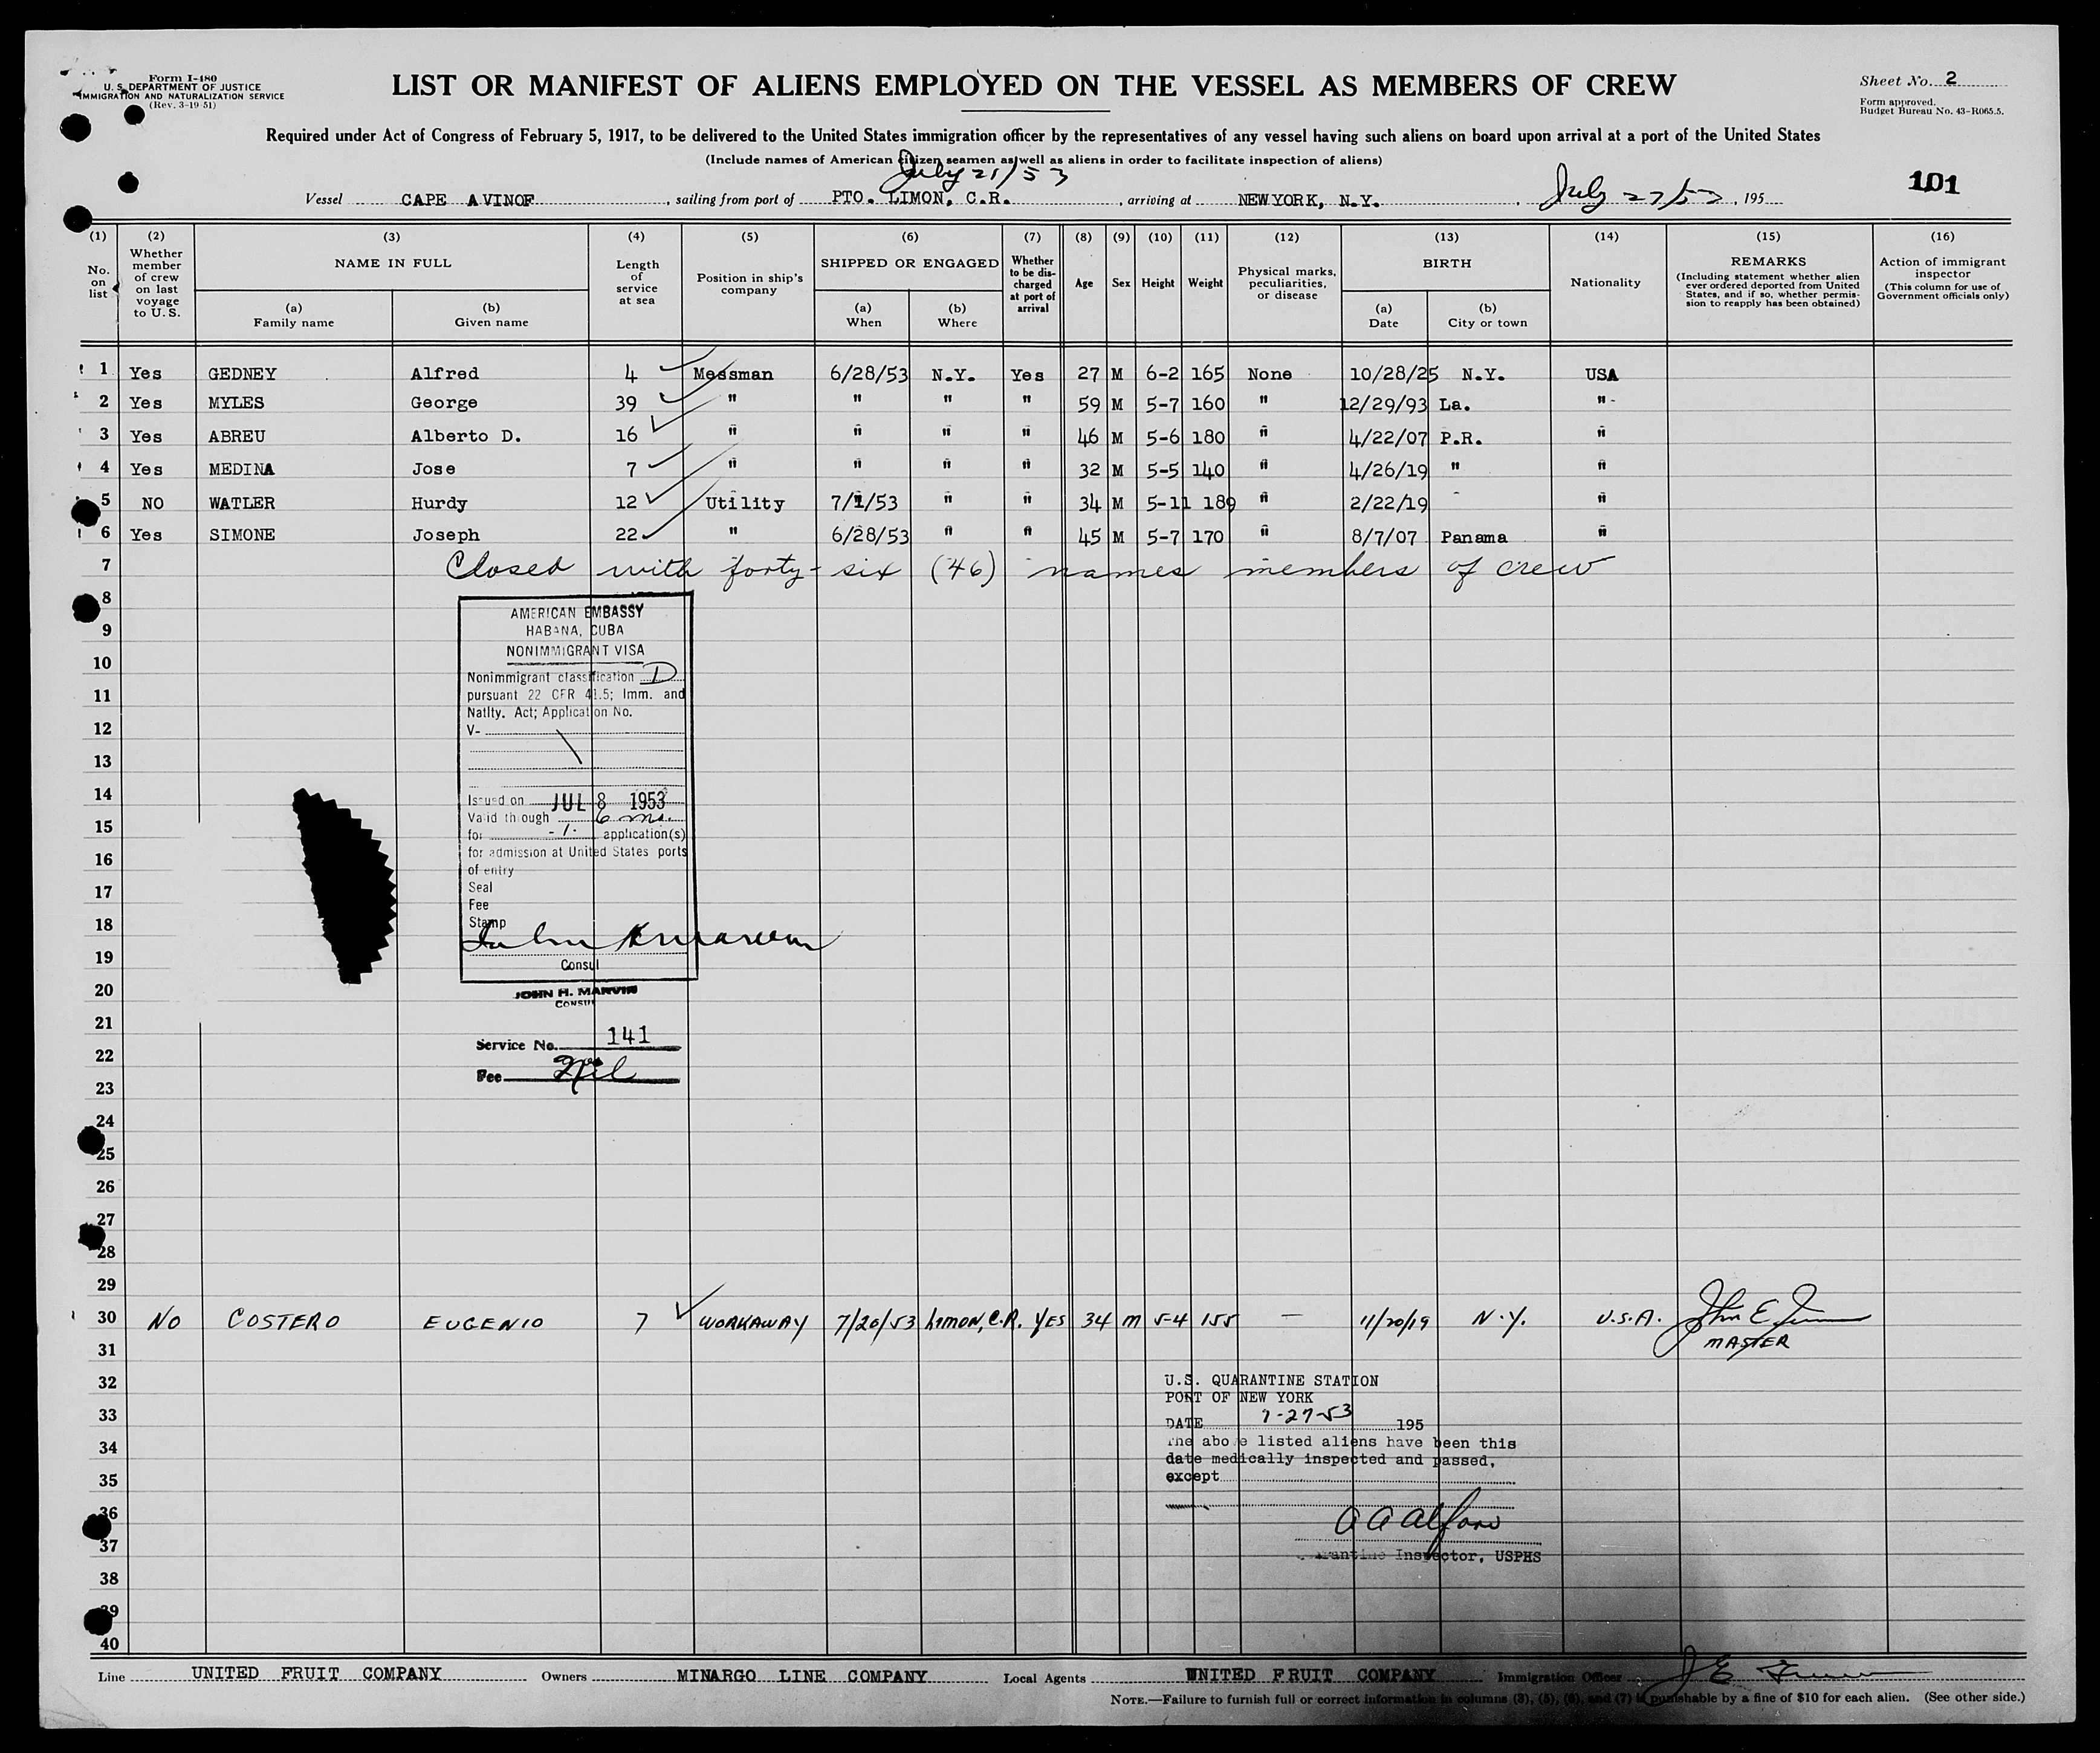 Form I-480
U. S. DEPARTMENT OF JUSTICE
IMMIGRATION AND NATURALIZATION SERVICE
(Rev. 3-19-51)
LIST OR MANIFEST OF ALIENS EMPLOYED ON THE VESSEL AS MEMBERS OF CREW
Sheet No. 2
Form approved.
Budget Bureau No. 43-R065.5.
Required under Act of Congress of February 5, 1917, to be delivered to the United States immigration officer by the representatives of any vessel having such aliens on board upon arrival at a port of the United States
(Include names of American citizen seamen as well as aliens in order to facilitate inspection of aliens)
July 21/53
101
Vessel CAPE AVINOF, sailing from port of PTO. LIMON, C.R., arriving at NEW YORK, N.Y., July 27/53, 195
(1) No. on list
(2) Whether member of crew on last voyage to U. S.
(3) NAME IN FULL (a) Family name (b) Given name
(4) Length of service at sea
(5) Position in ship's company
(6) SHIPPED OR ENGAGED (a) When (b) Where
(7) Whether to be discharged at port of arrival
(8) Age
(9) Sex
(10) Height
(11) Weight
(12) Physical marks, peculiarities, or disease
(13) BIRTH (a) Date (b) City or town
(14) Nationality
(15) REMARKS (Including statement whether alien ever ordered deported from United States, and if so, whether permission to reapply has been obtained)
(16) Action of immigrant inspector (This column for use of Government officials only)
1 Yes GEDNEY Alfred 4 Messman 6/28/53 N.Y. Yes 27 M 6-2 165 None 10/28/25 N.Y. USA
2 Yes MYLES George 39 " " " " 59 M 5-7 160 " 12/29/93 La. "
3 Yes ABREU Alberto D. 16 " " " " 46 M 5-6 180 " 4/22/07 P.R. "
4 Yes MEDINA Jose 7 " " " " 32 M 5-5 140 " 4/26/19 " "
5 NO WATLER Hurdy 12 Utility 7/1/53 " " 34 M 5-11 189 " 2/22/19 "
6 Yes SIMONE Joseph 22 " 6/28/53 " " 45 M 5-7 170 " 8/7/07 Panama "
7 Closed with forty-six (46) names members of crew
8
9
10
11
12
13
14
15
16
17
18
19
20
21
22
23
24
25
26
27
28
29
AMERICAN EMBASSY
HABANA, CUBA
NONIMMIGRANT VISA
Nonimmigrant classification D
pursuant 22 CFR 41.5; Imm. and
Natlty. Act; Application No.
V-
Issued on JUL 8 1953
Valid through 6 mo.
for -1- application(s)
for admission at United States ports
of entry
Seal
Fee
Stamp
Consul
JOHN H. MARVIN
CONSUL
Service No. 141
Fee Nil
30 NO COSTERO EUGENIO 7 WORKAWAY 7/20/53 LIMON, C.R. YES 34 M 5-4 155 — 11/20/19 N.Y. U.S.A.
MASTER
31
32
33
34
35
36
37
38
39
40
U.S. QUARANTINE STATION
PORT OF NEW YORK
DATE 7-27-53 195
The above listed aliens have been this
date medically inspected and passed,
except
Quarantine Inspector, USPHS
Line UNITED FRUIT COMPANY Owners MINARGO LINE COMPANY Local Agents UNITED FRUIT COMPANY Immigration Officer
NOTE.—Failure to furnish full or correct information in columns (3), (5), (6), and (7) is punishable by a fine of $10 for each alien. (See other side.)